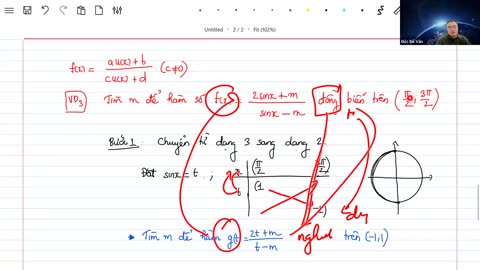 Untitled • 2 / 2 • Fit (102%)
f(x) = au(x)+b / cu(x)+d (c≠0)
VD3 Tìm m để hàm số f(x) = 2sinx+m / sinx-m đồng biến trên (π/2; 3π/2)
Bước 1: Chuyển từ dạng 3 sang dạng 2
Đặt sinx = t ; x (π/2 3π/2)
t (1 -1)
* Tìm m để hàm g(t) = 2t+m / t-m nghịch trên (-1;1)